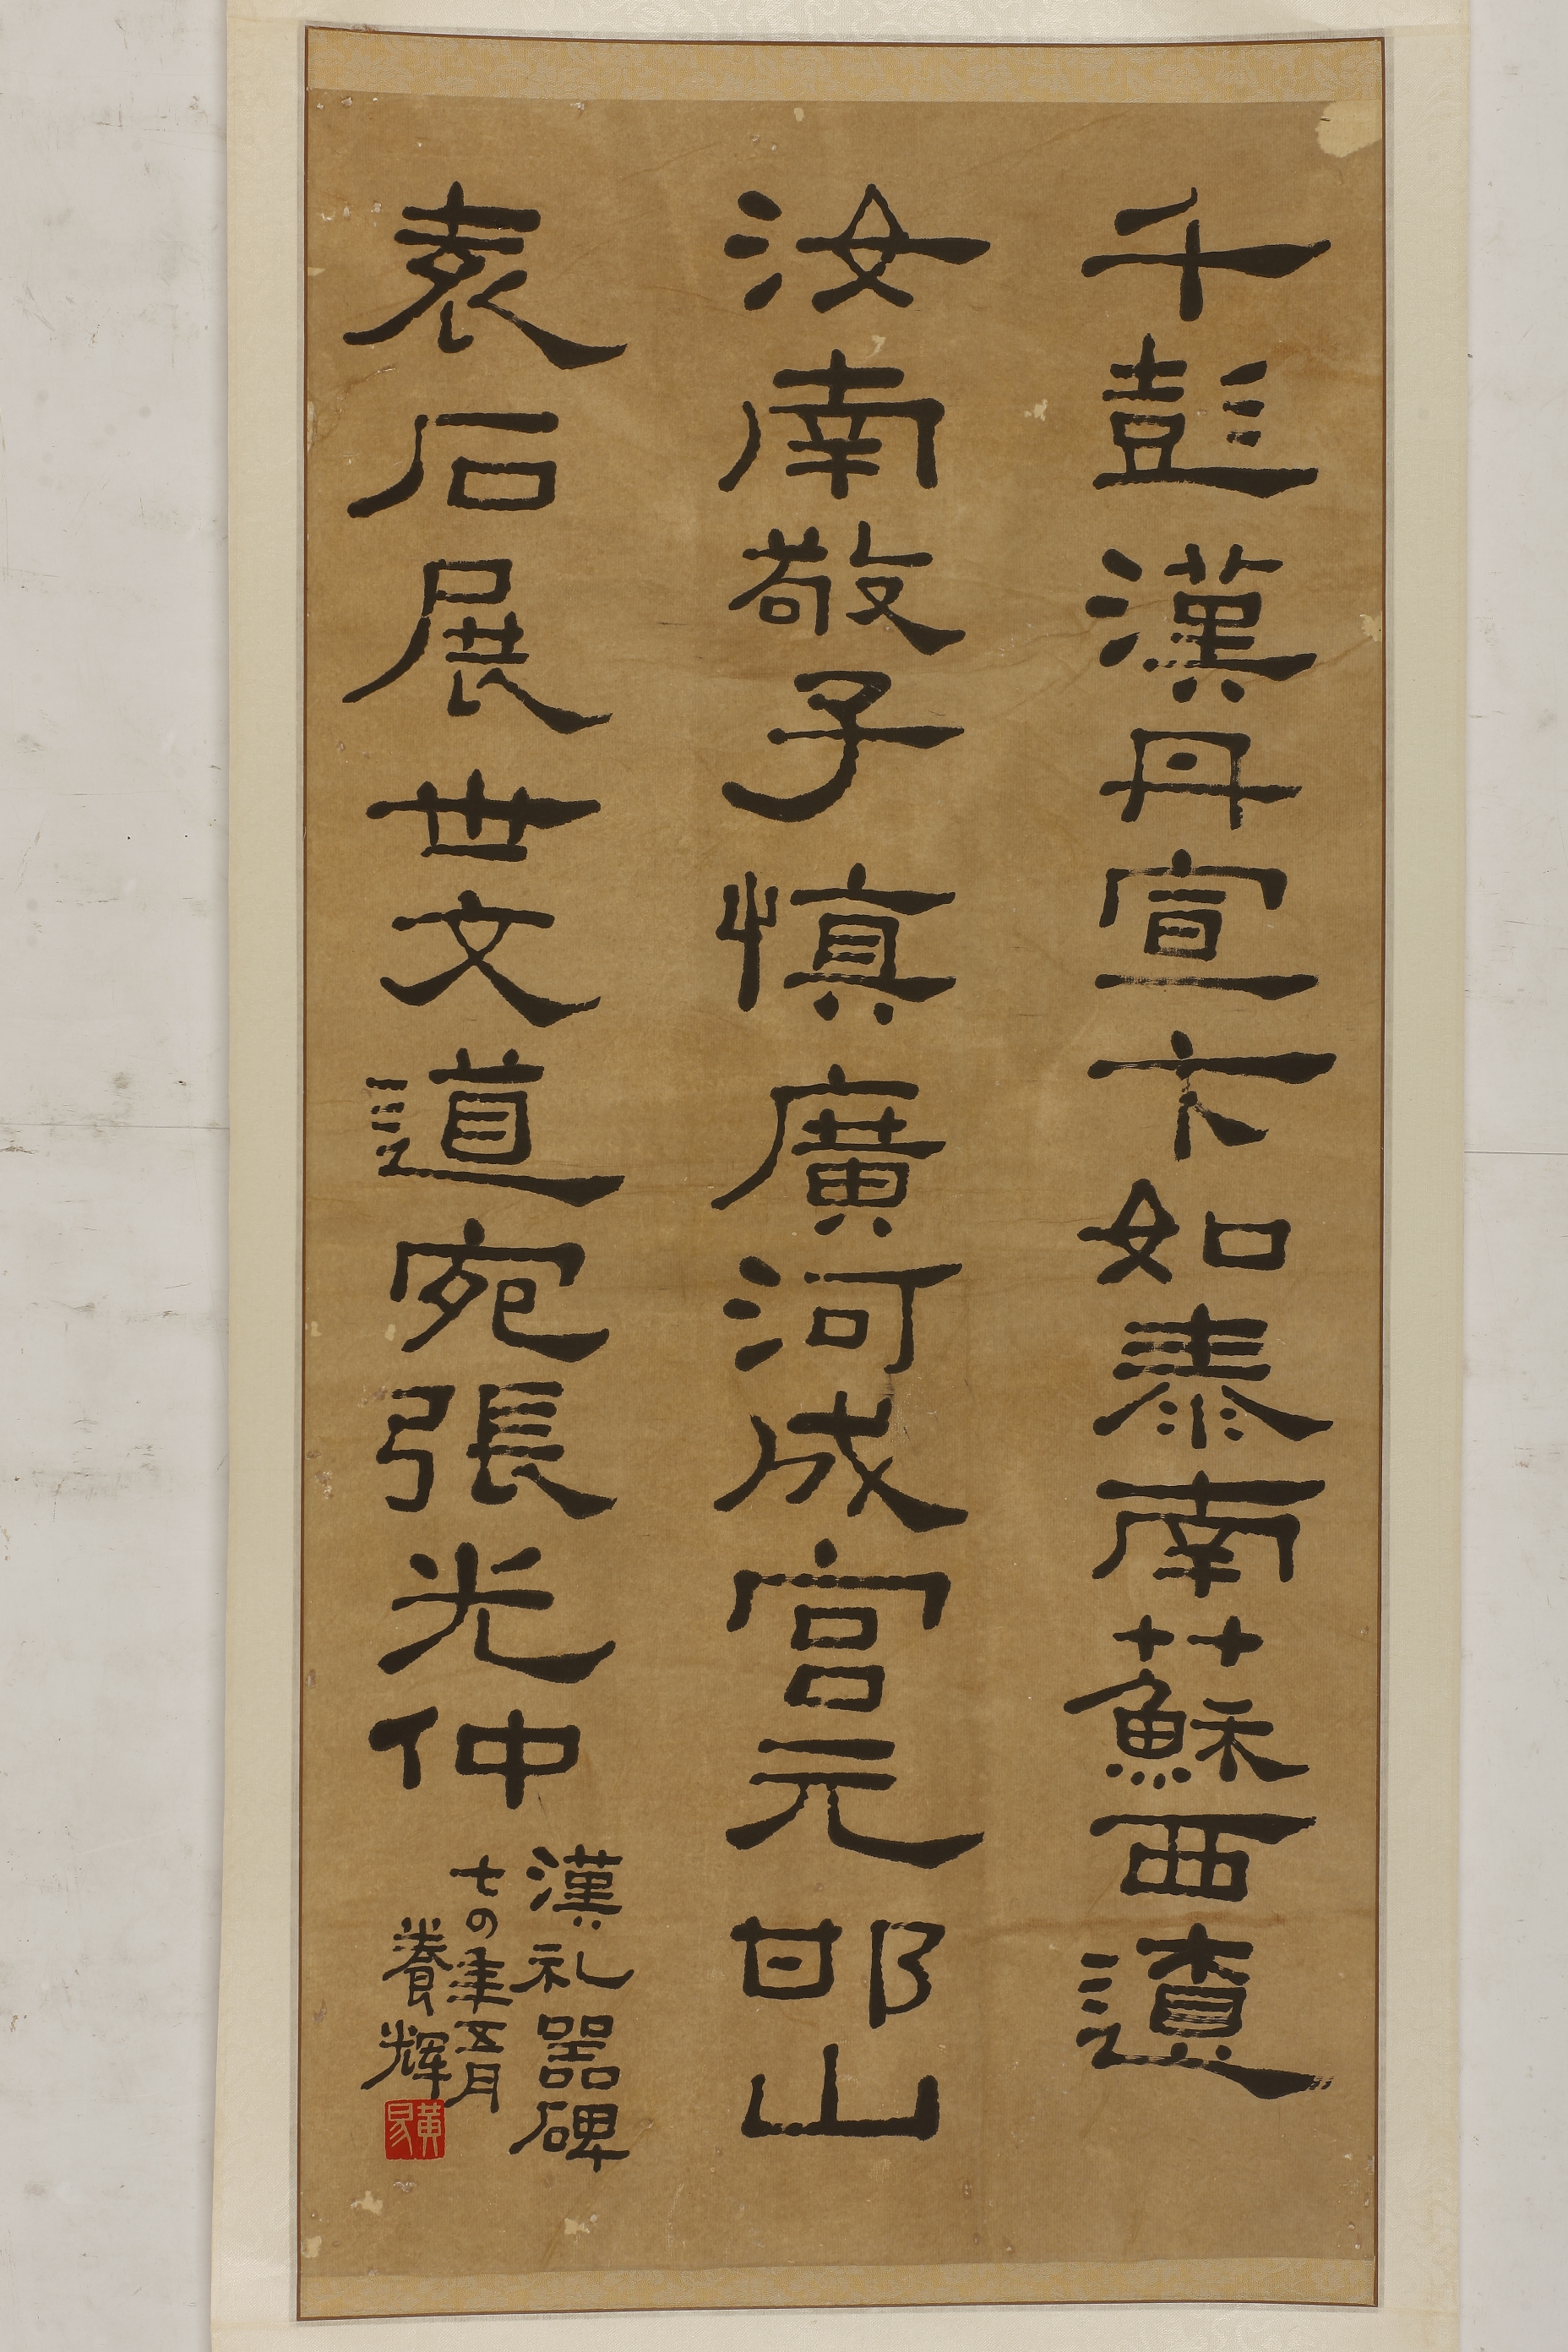 千彭漢丹宣卞如泰南蘇西遺
汝南敬子慎廣河成宫元邯山
袁石展世文道宛張光仲
漢礼器碑
七〇年五月
養輝
黄易